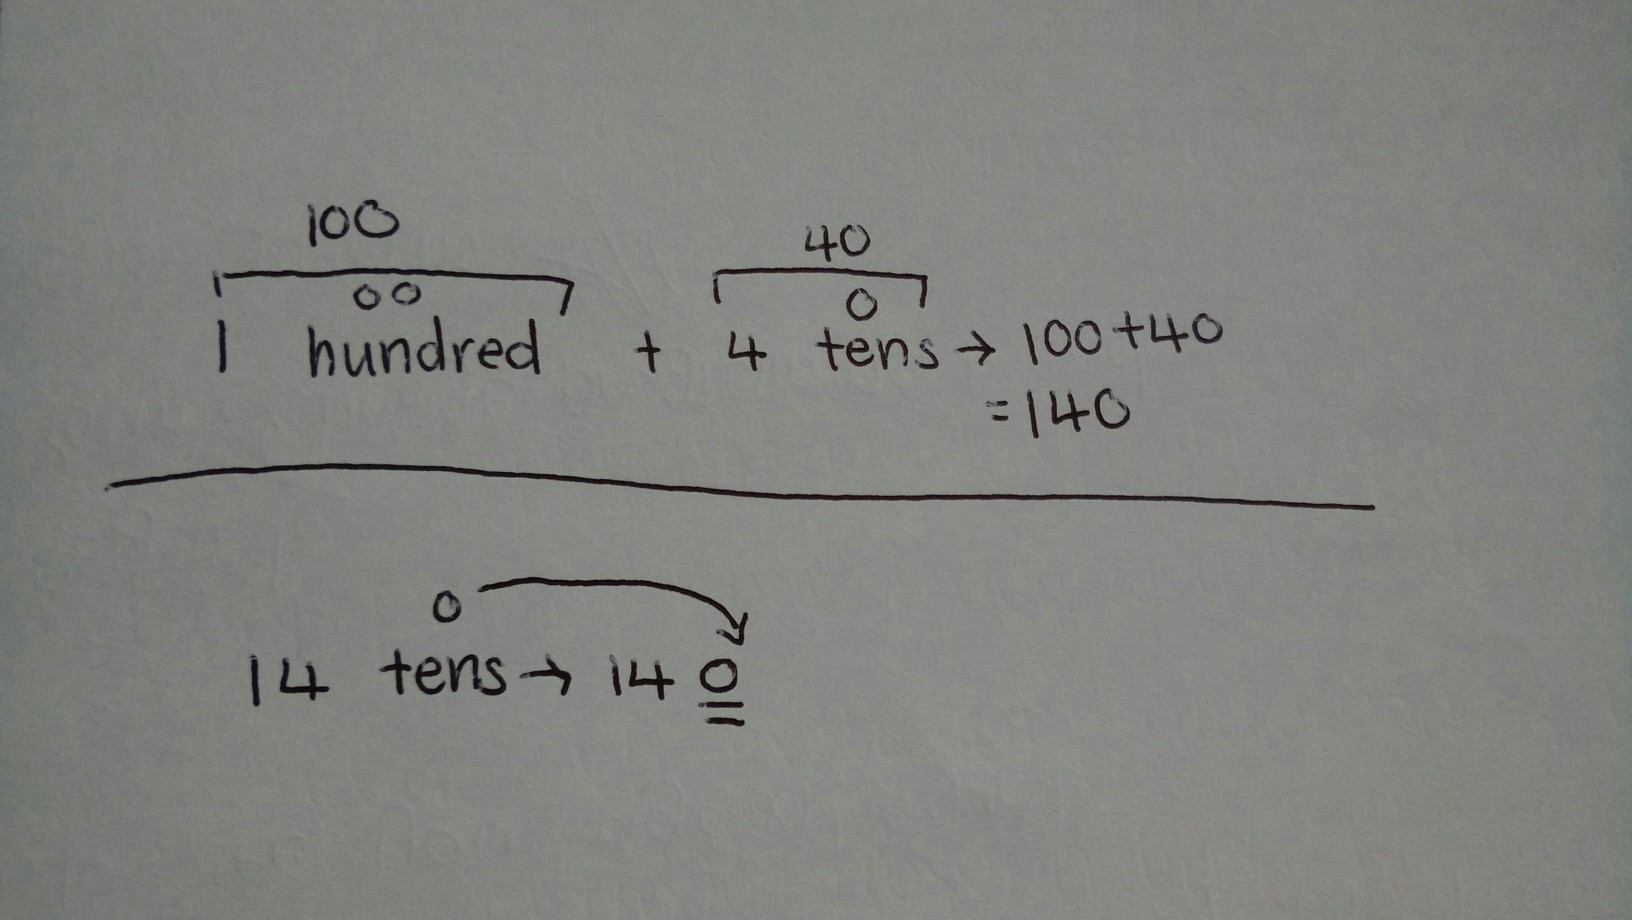 100 40
00 0
1 hundred + 4 tens → 100+40
=140
0
14 tens → 140